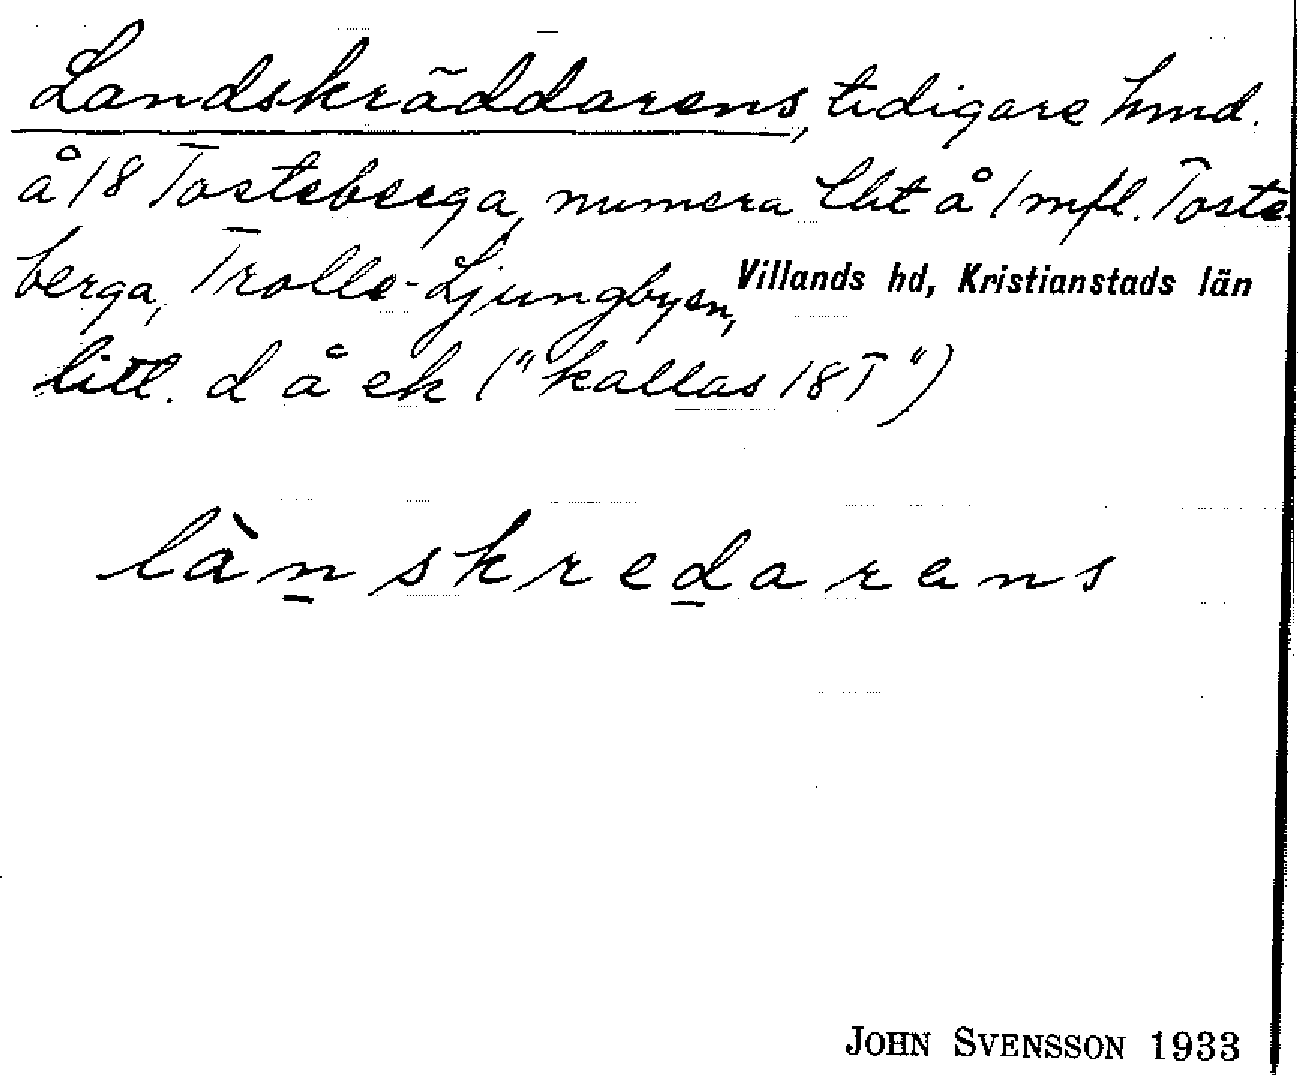 Landskräddarens, tidigare hmd.
å 18 Tosteberga, numera lht å 1 mfl. Toste-
berga, Trolle-Ljungbysn, Villands hd, Kristianstads län
litt. d å ek ("kallas 18T")
lànskredarens
JOHN SVENSSON 1933